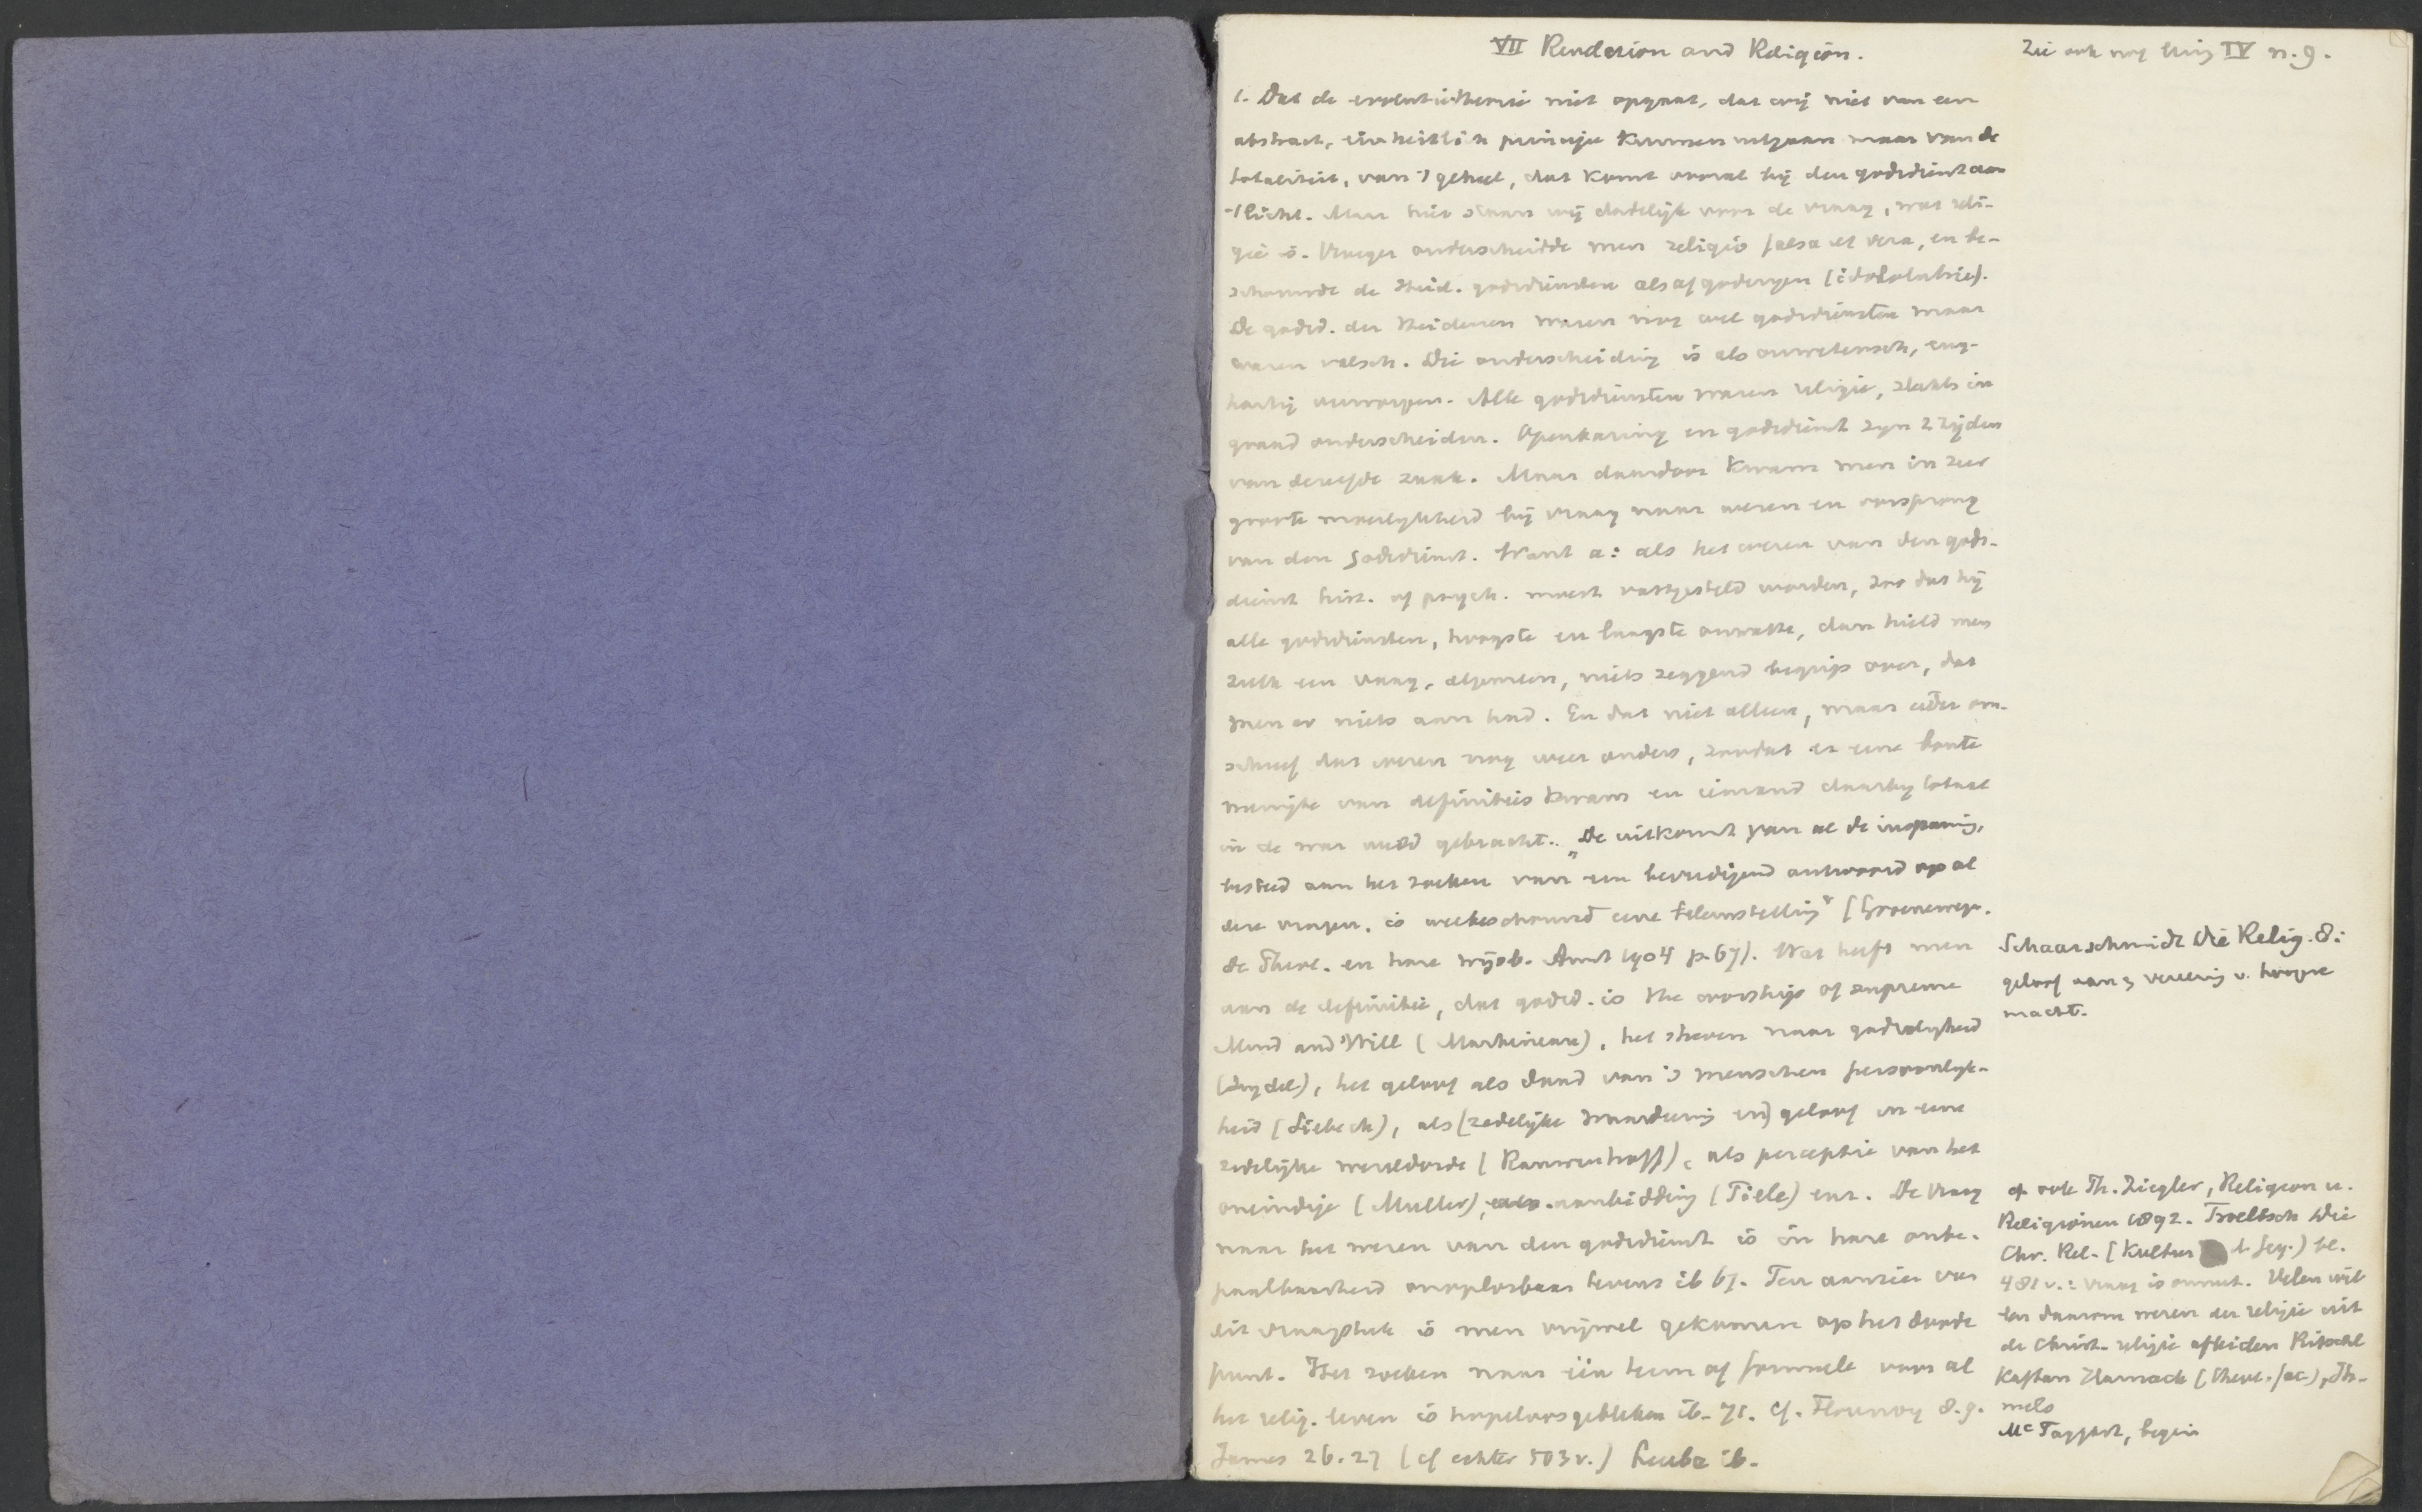 VII Revelation and Religion.
Zie ook nog IV n. 9.
1. Dat de evolutietheorie niet opgaat, dat wij niet van een
abstract, einheitlich principe kunnen uitgaan maar van de
totaliteit, van 't geheel, dat komt vooral bij den godsdienst aan
't licht. Maar hier staan wij dadelijk voor de vraag, wat reli-
gie is. Vroeger onderscheidde men religio falsa et vera, en be-
schouwde de Heid. godsdiensten als afgoderyen (idololatrie).
De godsd. der Heidenen waren nog wel godsdiensten maar
waren valsch. Die onderscheiding is als onwetensch, eng-
hartig verworpen. Alle godsdiensten waren religie, slechts in
graad onderscheiden. Openbaring en godsdienst zyn 2 zijden
van dezelfde zaak. Maar daardoor kwam men in zeer
groote moeilykheid bij vraag naar wezen en oorsprong
van den Godsdienst. Want a: als het wezen van den gods-
dienst hist. of psych. moest vastgesteld worden, zoo dat hij
alle godsdiensten, hoogste en laagste omvatte, dan hield men
zulk een vaag, algemeen, niets zeggend begrip over, dat
men er niets aan had. En dat niet alleen, maar ieder om-
schreef dat wezen nog weer anders, zoodat er eene bonte
menigte van definities kwam en iemand daarby totaal
in de war werd gebracht. „De uitkomst van al de inspanning,
besteed aan het zoeken van een bevredigend antwoord op al
deze vragen, is welbeschouwd eene teleurstelling" (Groenewegen.
de Theol. en hare wijsb. Amst 1904 p. 67). Wat heeft men
aan de definitie, dat godsd. is the worship of supreme
Mind and Will (Martineau), het streven naar godzalygheid
(Drydel), het geloof als daad van 's menschen persoonlyk-
heid (Siebeck), als (zedelijke waardeering en) geloof in eene
zedelijke wereldorde (Rauwenhoff), als perceptie van het
oneindige (Muller), aanbidding (Tiele) enz. De vraag
naar het wezen van den godsdienst is in hare onbe-
paalbaarheid onoplosbaar tevens ib 67. Ten aanzien van
dit vraagstuk is men vrijwel gekomen op het doode
punt. Het zoeken naar één term of formule voor al
het relig. leven is hopeloos gebleken ib. 71. cf. Flournoy 8.9.
James 26.27 (cf echter 503 v.) Leuba ib.
Schaarschmidt Die Relig. 8:
geloof aan & vereering v. hoogere
macht.
cf ook Th. Ziegler, Religion u.
Religionen 1892. Troeltsch Die
Chr. Rel. (Kultur d. Geg.) bl.
481 v.: vraag is onnut. Velen wil-
len daarom wezen der religie uit
de Christ. religie afleiden Ritschl
Kaftan Harnack (Theol. fac.), Th-
melo
McTaggart, begin